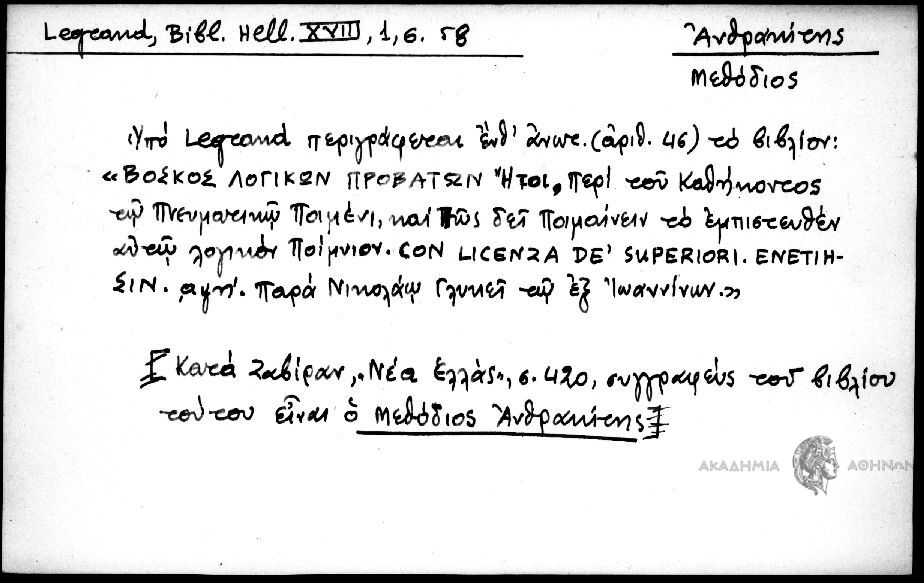 Legrand, Bibl. Hell. XVIII, 1, σ. 58
Ἀνθρακίτης
Μεθόδιος
Ὑπό Legrand περιγράφεται ἐνθ' ἀνωτ. (ἀριθ. 46) τό βιβλίον:
«ΒΟΣΚΟΣ ΛΟΓΙΚΩΝ ΠΡΟΒΑΤΩΝ Ἤτοι, Περί τοῦ Καθήκοντος
τῷ Πνευματικῷ Ποιμένι, καί Πῶς δεῖ Ποιμαίνειν τό ἐμπιστευθέν
αὐτῷ λογικόν Ποίμνιον. CON LICENZA DE' SUPERIORI. ΕΝΕΤΙΗ-
ΣΙΝ. ͵αψη'. Παρά Νικολάῳ Γλυκεῖ τῷ ἐξ Ἰωαννίνων.»
[Κατά Ζαβίραν, «Νέα Ἑλλάς», σ. 420, συγγραφεύς τοῦ βιβλίου
τούτου εἶναι ὁ Μεθόδιος Ἀνθρακίτης]
ΑΚΑΔΗΜΙΑ ΑΘΗΝΩΝ